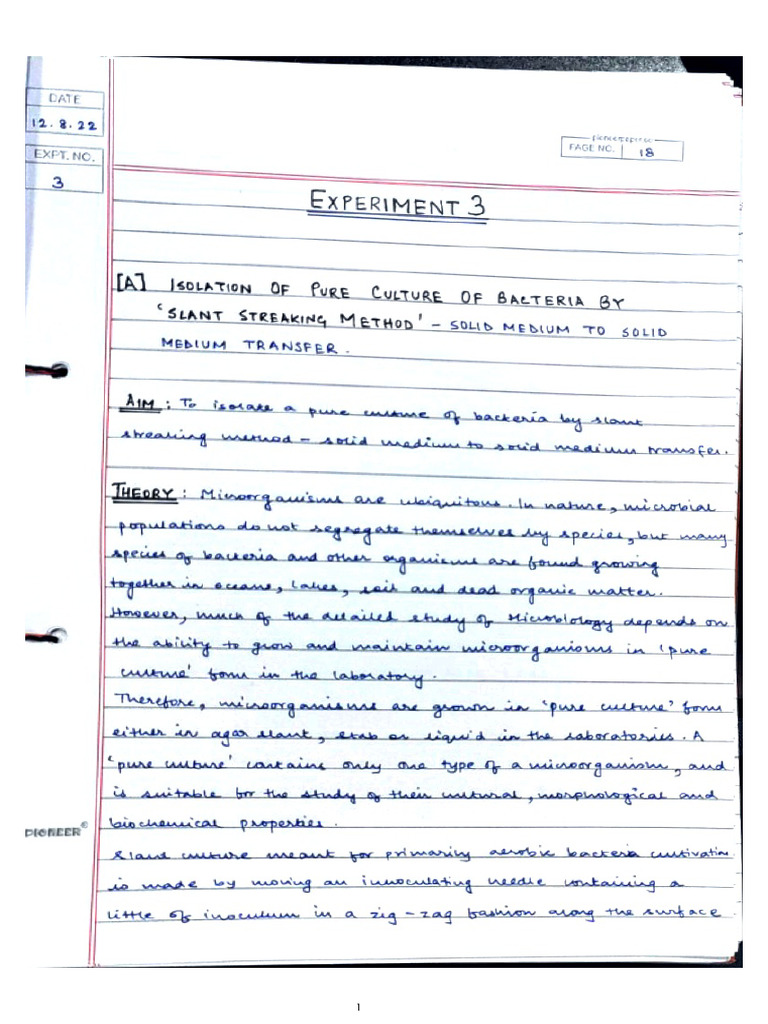 DATE
12.8.22
EXPT. NO.
3
PAGE NO. 18
EXPERIMENT 3
[A] ISOLATION OF PURE CULTURE OF BACTERIA BY
'SLANT STREAKING METHOD' - SOLID MEDIUM TO SOLID
MEDIUM TRANSFER.
AIM : To isolate a pure culture of bacteria by slant
streaking method - solid medium to solid medium transfer.
THEORY : Microorganisms are ubiquitous. In nature, microbial
populations do not segregate themselves by species, but many
species of bacteria and other organisms are found growing
together in oceans, lakes, soil and dead organic matter.
However, much of the detailed study of Microbiology depends on
the ability to grow and maintain microorganisms in 'pure
culture' form in the laboratory.
Therefore, microorganisms are grown in 'pure culture' form
either in agar slant, stab or liquid in the laboratories. A
'pure culture' contains only one type of a microorganism, and
is suitable for the study of their cultural, morphological and
biochemical properties.
PIONEER®
Slant culture meant for primarily aerobic bacteria cultivation
is made by moving an innoculating needle containing a
little of inoculum in a zig-zag fashion along the surface
1